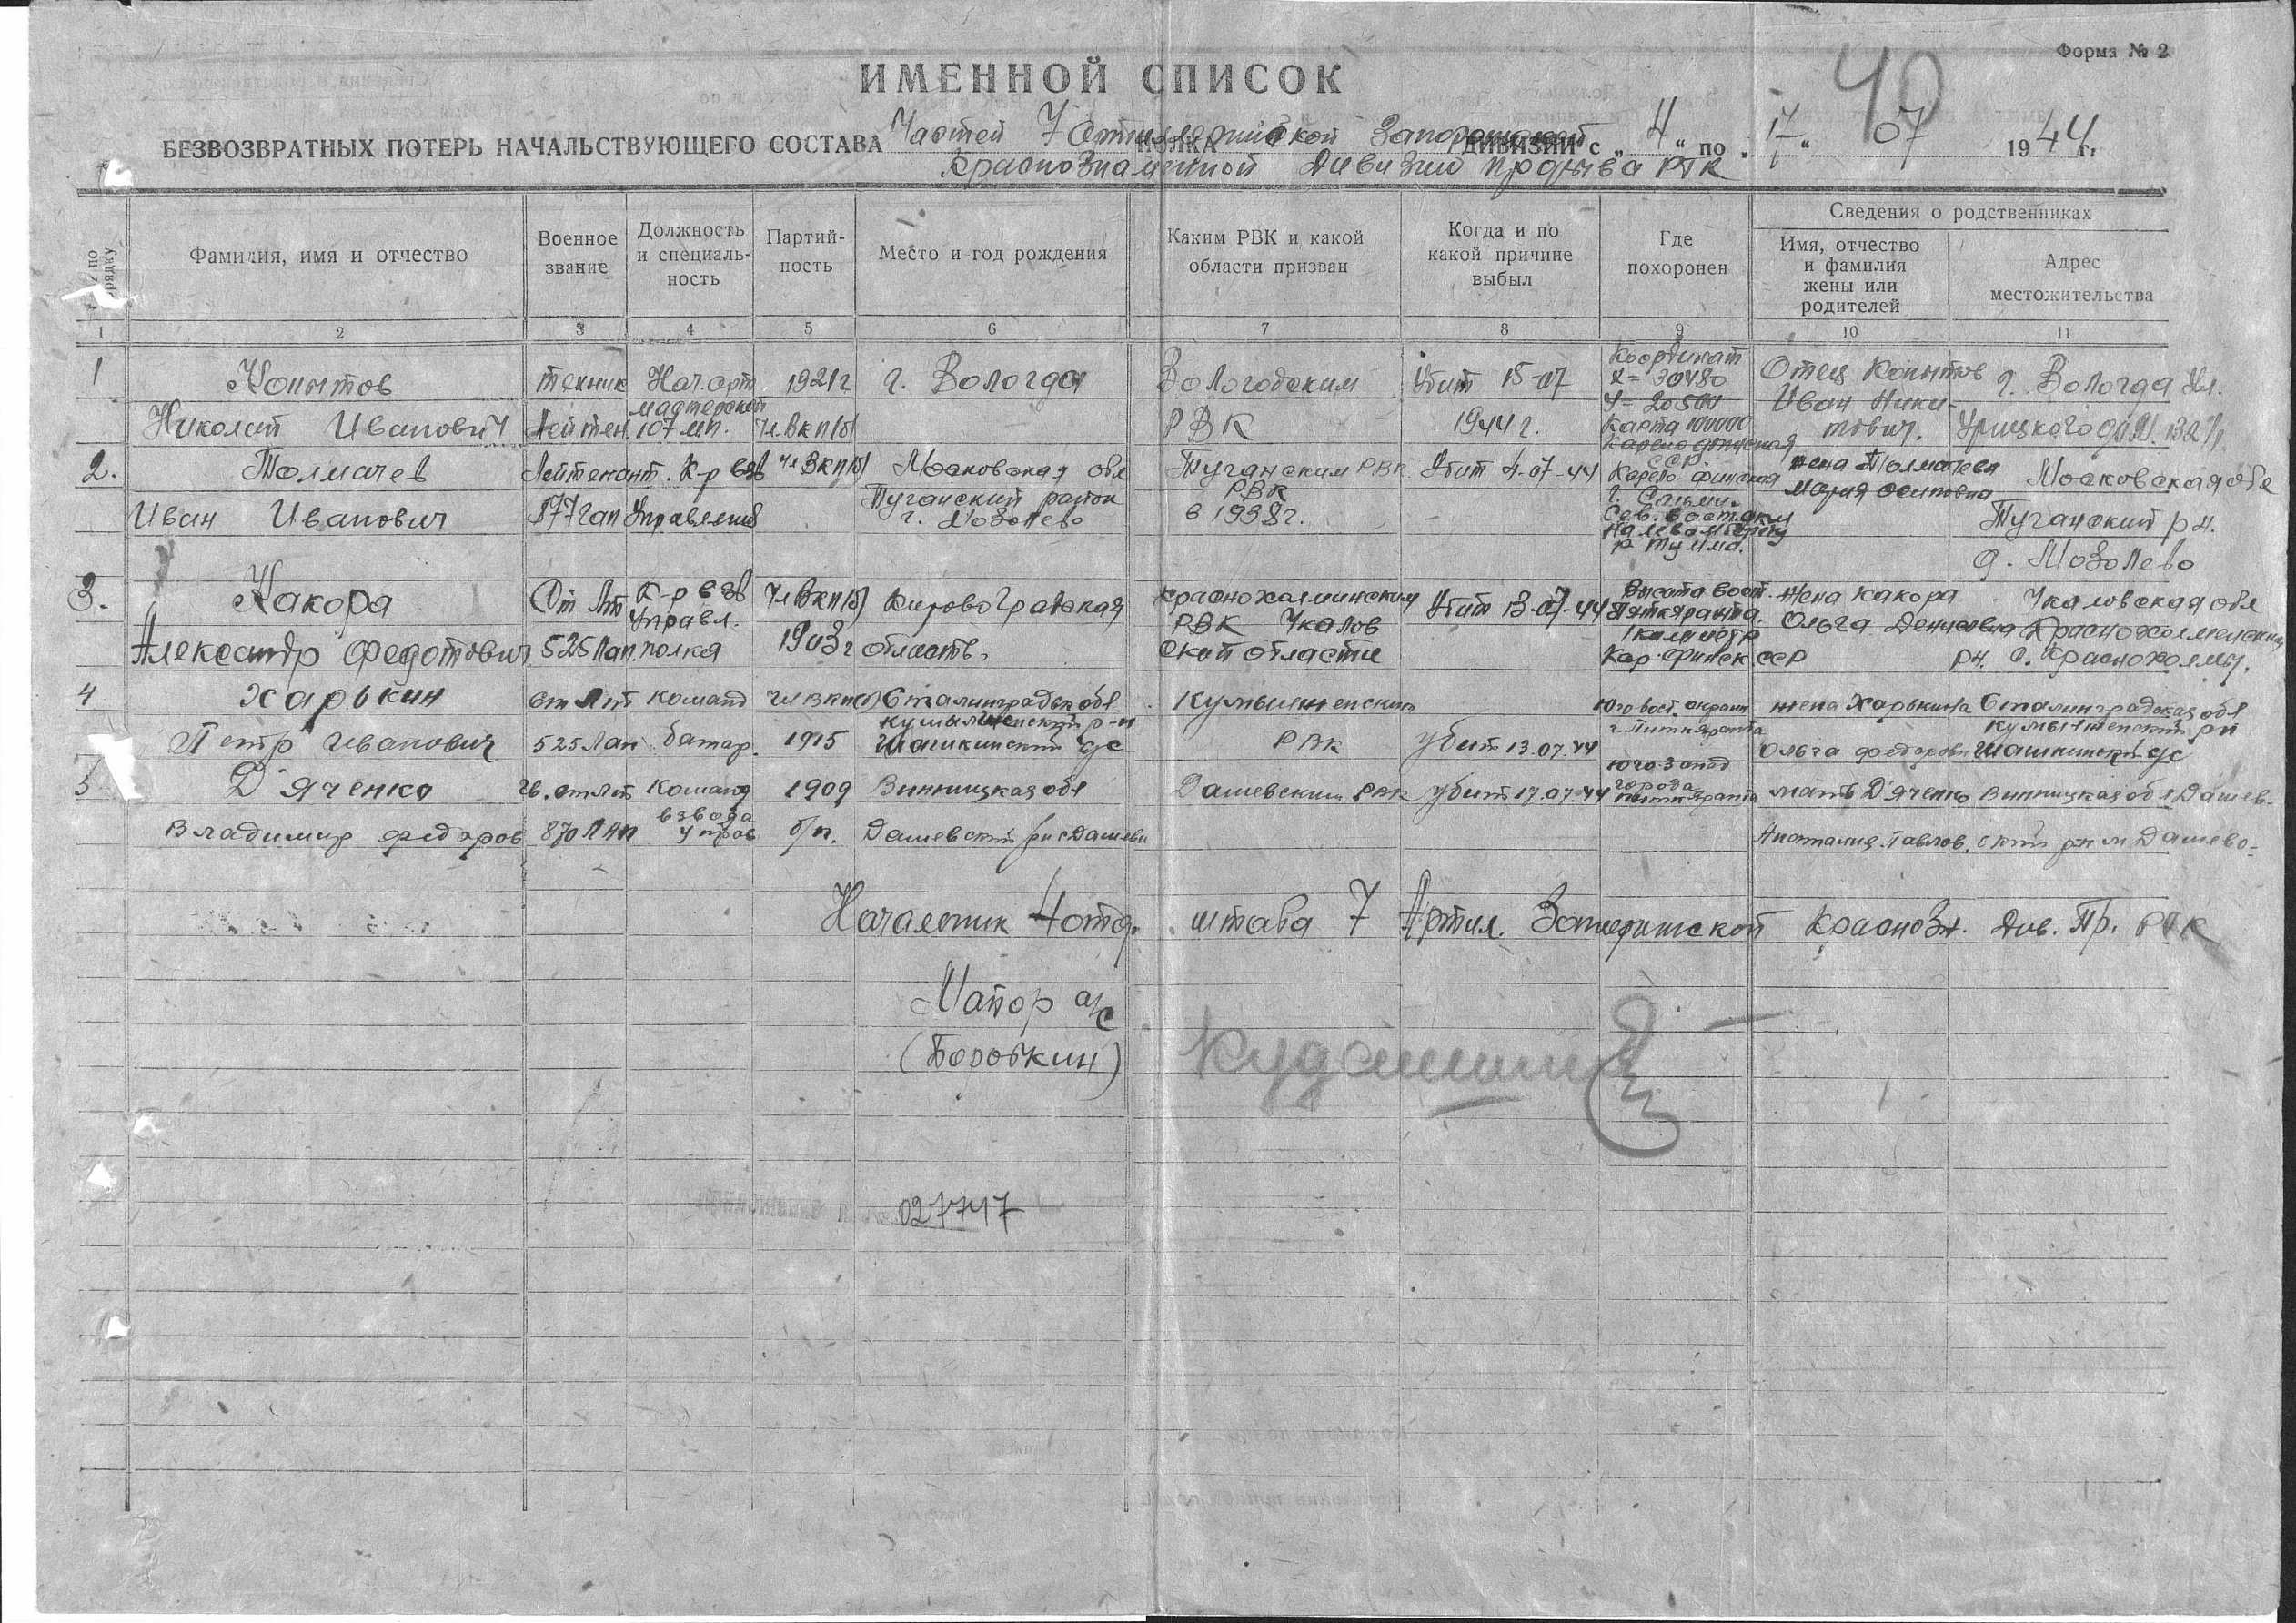 Форма № 2
40
ИМЕННОЙ СПИСОК
БЕЗВОЗВРАТНЫХ ПОТЕРЬ НАЧАЛЬСТВУЮЩЕГО СОСТАВА Частей 7 Артиллерийской Запорожской ПОЛКА ДИВИЗИИ с „4“ по „17“ 07 1944 г.
Краснознаменной Дивизии прорыва РГК
по порядку
Фамилия, имя и отчество
Военное звание
Должность и специальность
Партий-ность
Место и год рождения
Каким РВК и какой области призван
Когда и по какой причине выбыл
Где похоронен
Сведения о родственниках
Имя, отчество и фамилия жены или родителей
Адрес местожительства
1 2 3 4 5 6 7 8 9 10 11
1 Копытов техник Нач. арт. 1921г г. Вологда Вологодским Убит 15-07 Координат Х=30480 Отец Копытов г. Вологда Ул.
Николай Иванович Лейтен. мастерской 107 мп. Чл. ВКП(б) РВК 1944г. У=20500 Карта 100000 Карело финская ССР Иван Ники-тович. Урицкого д. 132/1
2. Толмачев Лейтенант. К-р взв Чл ВКП(б) Московская обл Туганским РВК Убит 4-07-44 Карело-финская жена Толмачева Московская обл
Иван Иванович 177 гап Управления Туганский район РВК г. Сальми. Мария Осиповна Туганский р н.
г. Мозолево в 1938г. Сев. восток. км на левом берегу
р Тулма. д. Мозолево
3. Какора Ст Лт К-р взв Чл ВКП(б) Кировоградская Краснохолминским Убит 13-07-44 Высота вост. жена Какора Чкаловская обл
Управл. РВК Чкалов Питкяранта. Ольга Денисовна Краснохолмский
Александр Федотович 525 Лап. полка 1903г область. ской области 1 километр Кар. Финск. ССР рн. с. Краснохолмы.
4 Харькин ст Лт команд чл ВКП(б) Сталинградск обл. Кумылженским Юго вост. окраин жена Харькина Сталинградская обл
Кумылженский р-н г. Питкяранта Кумылженский рн
Петр Иванович 525 Лап батар. 1915 Шашкинский с/с РВК убит 13.07.44 Ольга Федоровн Шашкинский с/с
5 Д'яченко гв. ст Лт команд 1909 Винницкая обл Дашевским РВК убит 17.07.44 юго-запад города Питкяранта мать Д'яченко Винницкая обл Дашев-
Владимир Федоров 870 ЛАП взвода управ б/п. Дашевский рн с Дашеви Анастасия Павлов. ский рн м Дашево-
Начальник 4 отд. штаба 7 Артил. Запорожской Краснозн. Див. Пр. РГК
Майор а/с
(Боровкин)
Кудашкин
027717